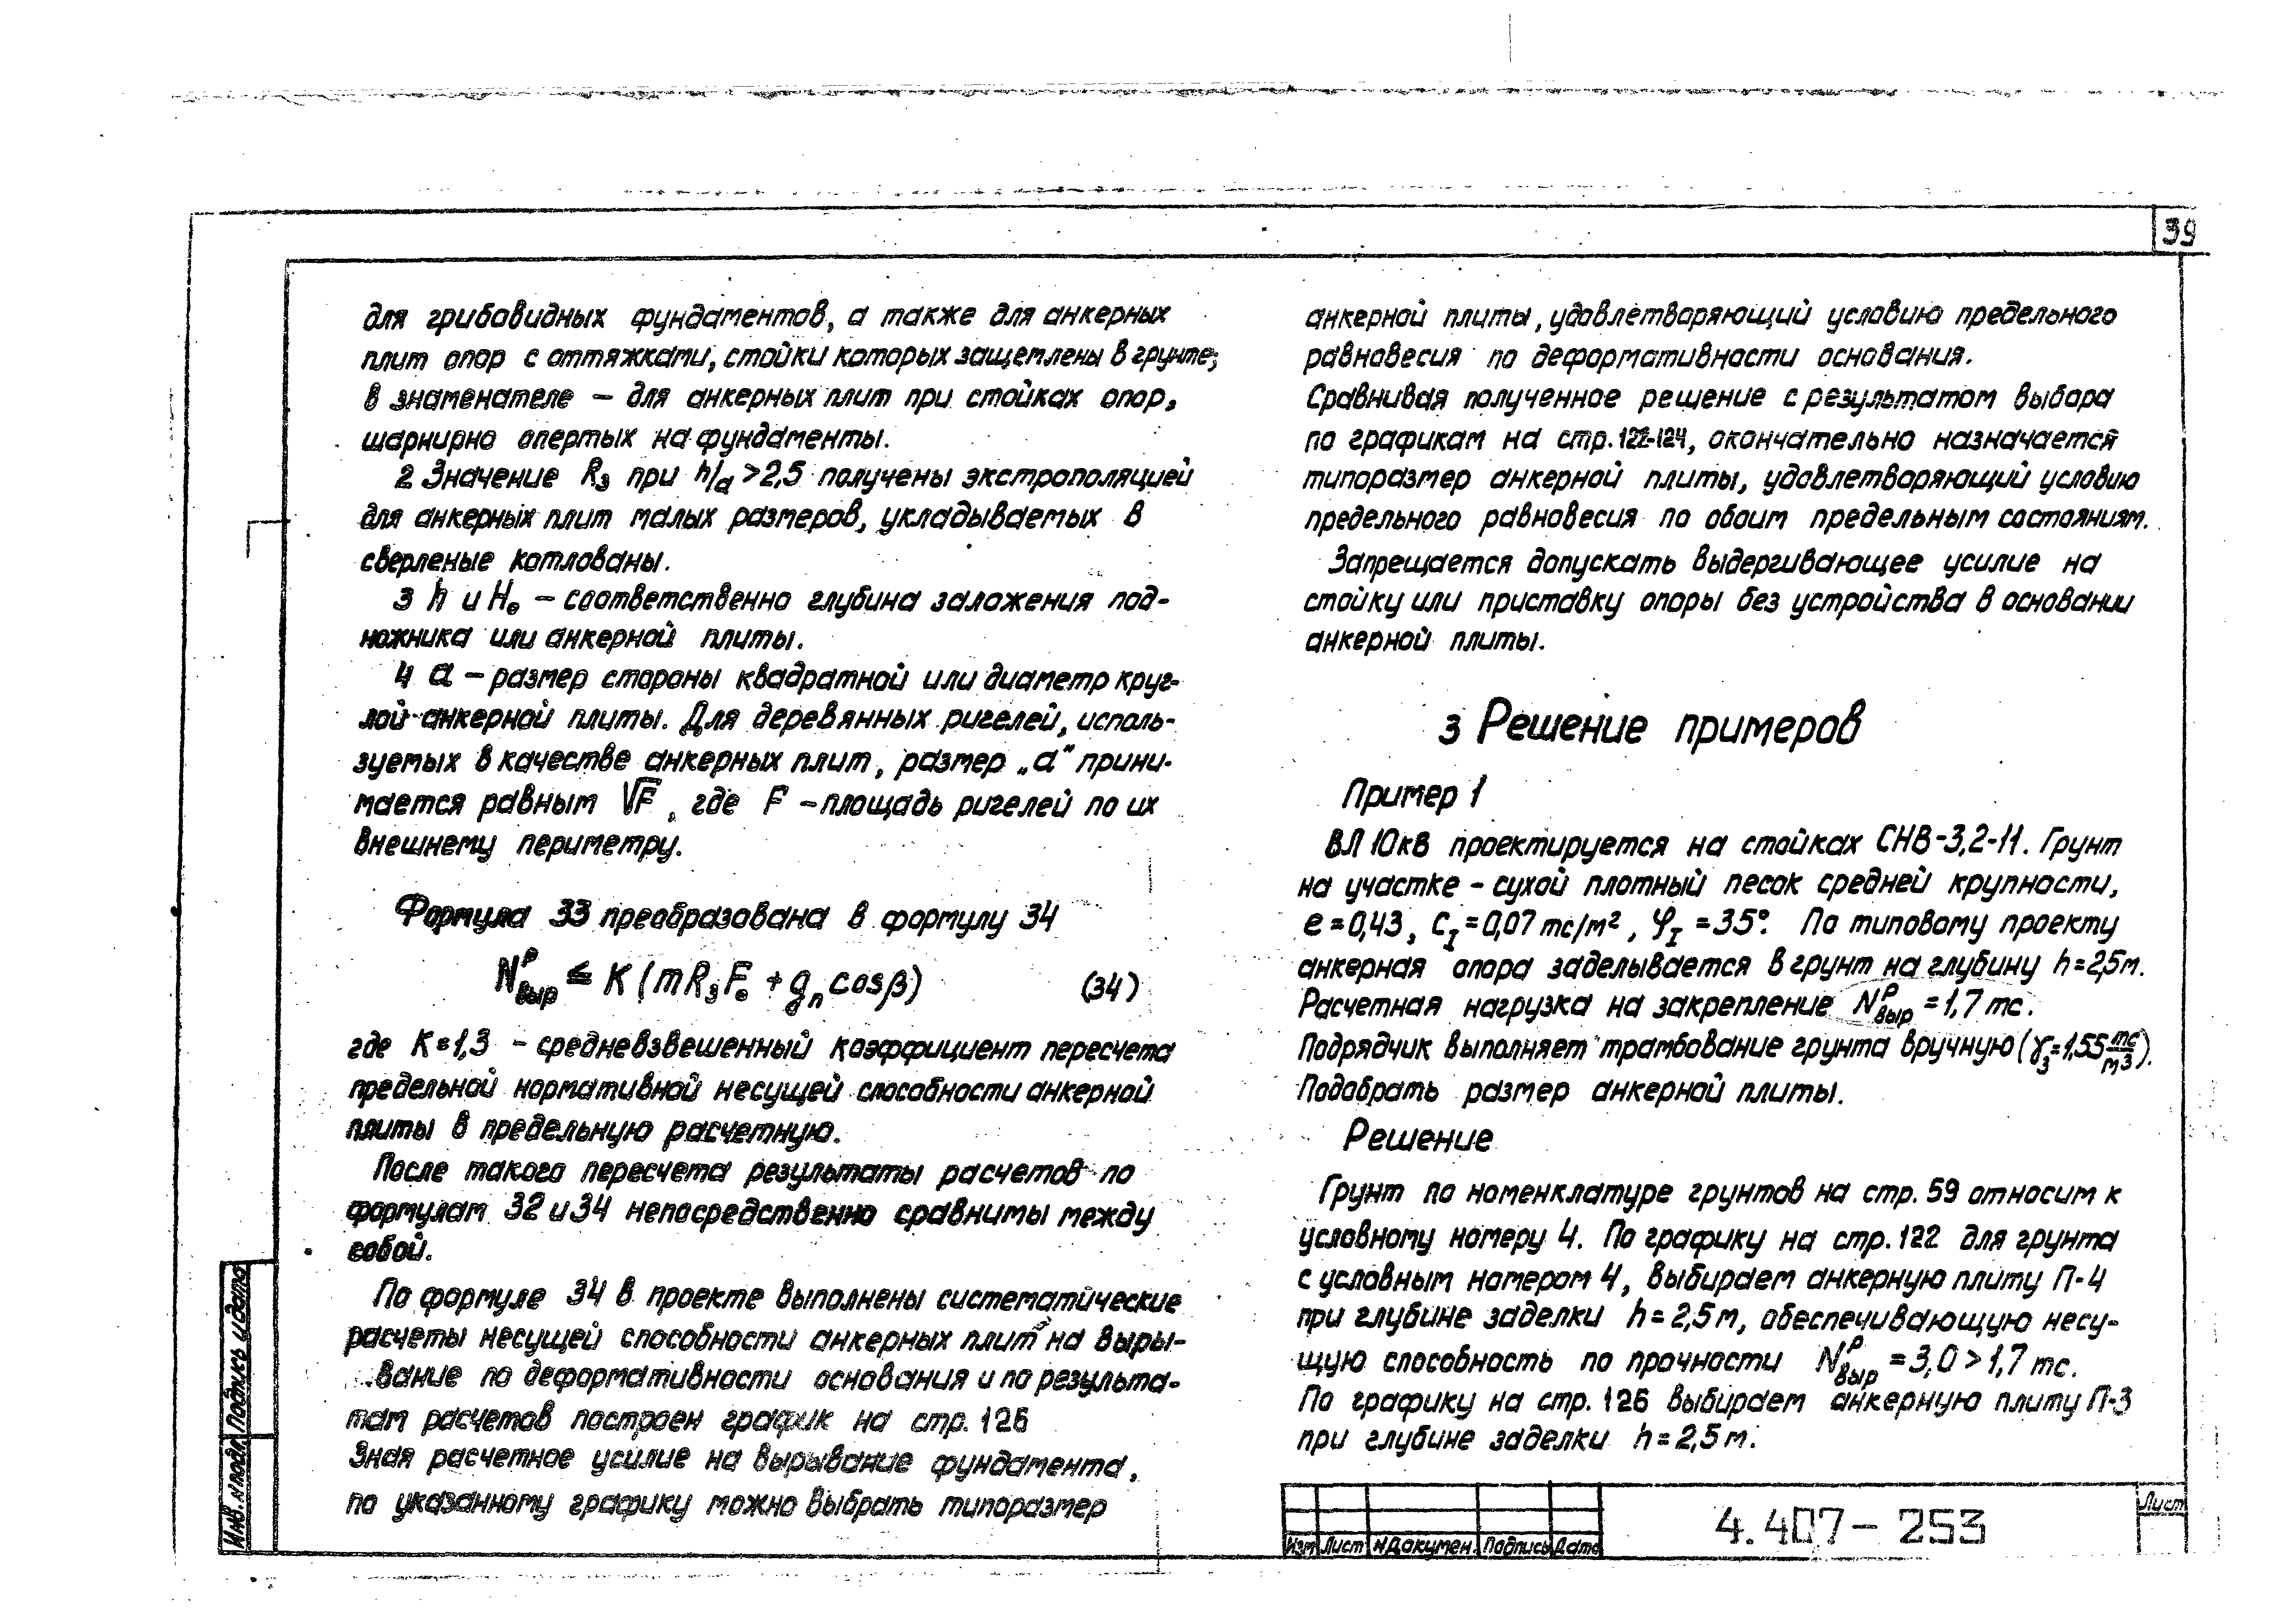 39
для грибовидных фундаментов, а также для анкерных
плит опор с оттяжками, стойки которых защемлены в грунте;
в знаменателе – для анкерных плит при стойках опор,
шарнирно опертых на фундаменты.
2 Значение Rз при h/a >2,5 получены экстрополяцией
для анкерных плит малых размеров, укладываемых в
сверленые котлованы.
3 h и H₀ – соответственно глубина заложения под-
ножника или анкерной плиты.
4 a – размер стороны квадратной или диаметр круг-
лой анкерной плиты. Для деревянных ригелей, исполь-
зуемых в качестве анкерных плит, размер „a“ прини-
мается равным √F, где F – площадь ригелей по их
внешнему периметру.
Формула 33 преобразована в формулу 34
Nᵖвыр ≤ K (mRзF₀ + gп cosβ) (34)
где K=1,3 – средневзвешенный коэффициент пересчета
предельной нормативной несущей способности анкерной
плиты в предельную расчетную.
После такого пересчета результаты расчетов по
формулам 32 и 34 непосредственно сравнимы между
собой.
По формуле 34 в проекте выполнены систематические
расчеты несущей способности анкерных плит на выры-
вание по деформативности основания и по результа-
там расчетов построен график на стр. 126
Зная расчетное усилие на вырывание фундамента,
по указанному графику можно выбрать типоразмер
анкерной плиты, удовлетворяющий условию предельного
равновесия по деформативности основания.
Сравнивая полученное решение с результатом выбора
по графикам на стр. 122-124, окончательно назначается
типоразмер анкерной плиты, удовлетворяющий условию
предельного равновесия по обоим предельным состояниям.
Запрещается допускать выдергивающее усилие на
стойку или приставку опоры без устройства в основании
анкерной плиты.
3 Решение примеров
Пример 1
ВЛ 10кВ проектируется на стойках СНВ-3,2-11. Грунт
на участке – сухой плотный песок средней крупности,
e=0,43, C_I=0,07 тс/м², φ_I=35°. По типовому проекту
анкерная опора заделывается в грунт на глубину h=2,5м.
Расчетная нагрузка на закрепление Nᵖвыр = 1,7 тс.
Подрядчик выполняет трамбование грунта вручную (γз=1,55 тс/м3).
Подобрать размер анкерной плиты.
Решение
Грунт по номенклатуре грунтов на стр. 59 относим к
условному номеру 4. По графику на стр. 122 для грунта
с условным номером 4, выбираем анкерную плиту П-4
при глубине заделки h = 2,5 м, обеспечивающую несу-
щую способность по прочности Nᵖвыр = 3,0 > 1,7 тс.
По графику на стр. 126 выбираем анкерную плиту П-3
при глубине заделки h = 2,5 м.
Инв. N подл. Подпись и дата
Изм Лист N Докумен. Подпись Дата
4.407 – 253
Лист